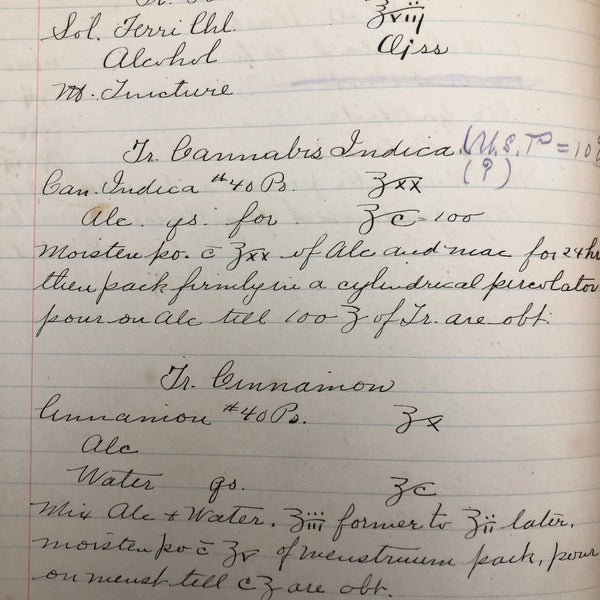 Sol. Ferri Chl. ʒviij
Alcohol Ojss
M. Tincture
Tr. Cannabis Indica. U.S.P = 10
(?)
Can. Indica #40 Po. ʒxx
Alc. qs. for ʒc-100
Moisten po. c̄ ʒxx of Alc and mac for 24 hr
then pack firmly in a cylindrical percolator
pour on Alc till 100 ʒ of Tr. are obt.
Tr. Cinnamon
Cinnamon #40 Po. ʒx
Alc
Water qs. ʒc
Mix Alc + Water. ʒiii former to ʒii later,
moisten po c̄ ʒv of menstruum pack, pour
on menst till c ʒ are obt.